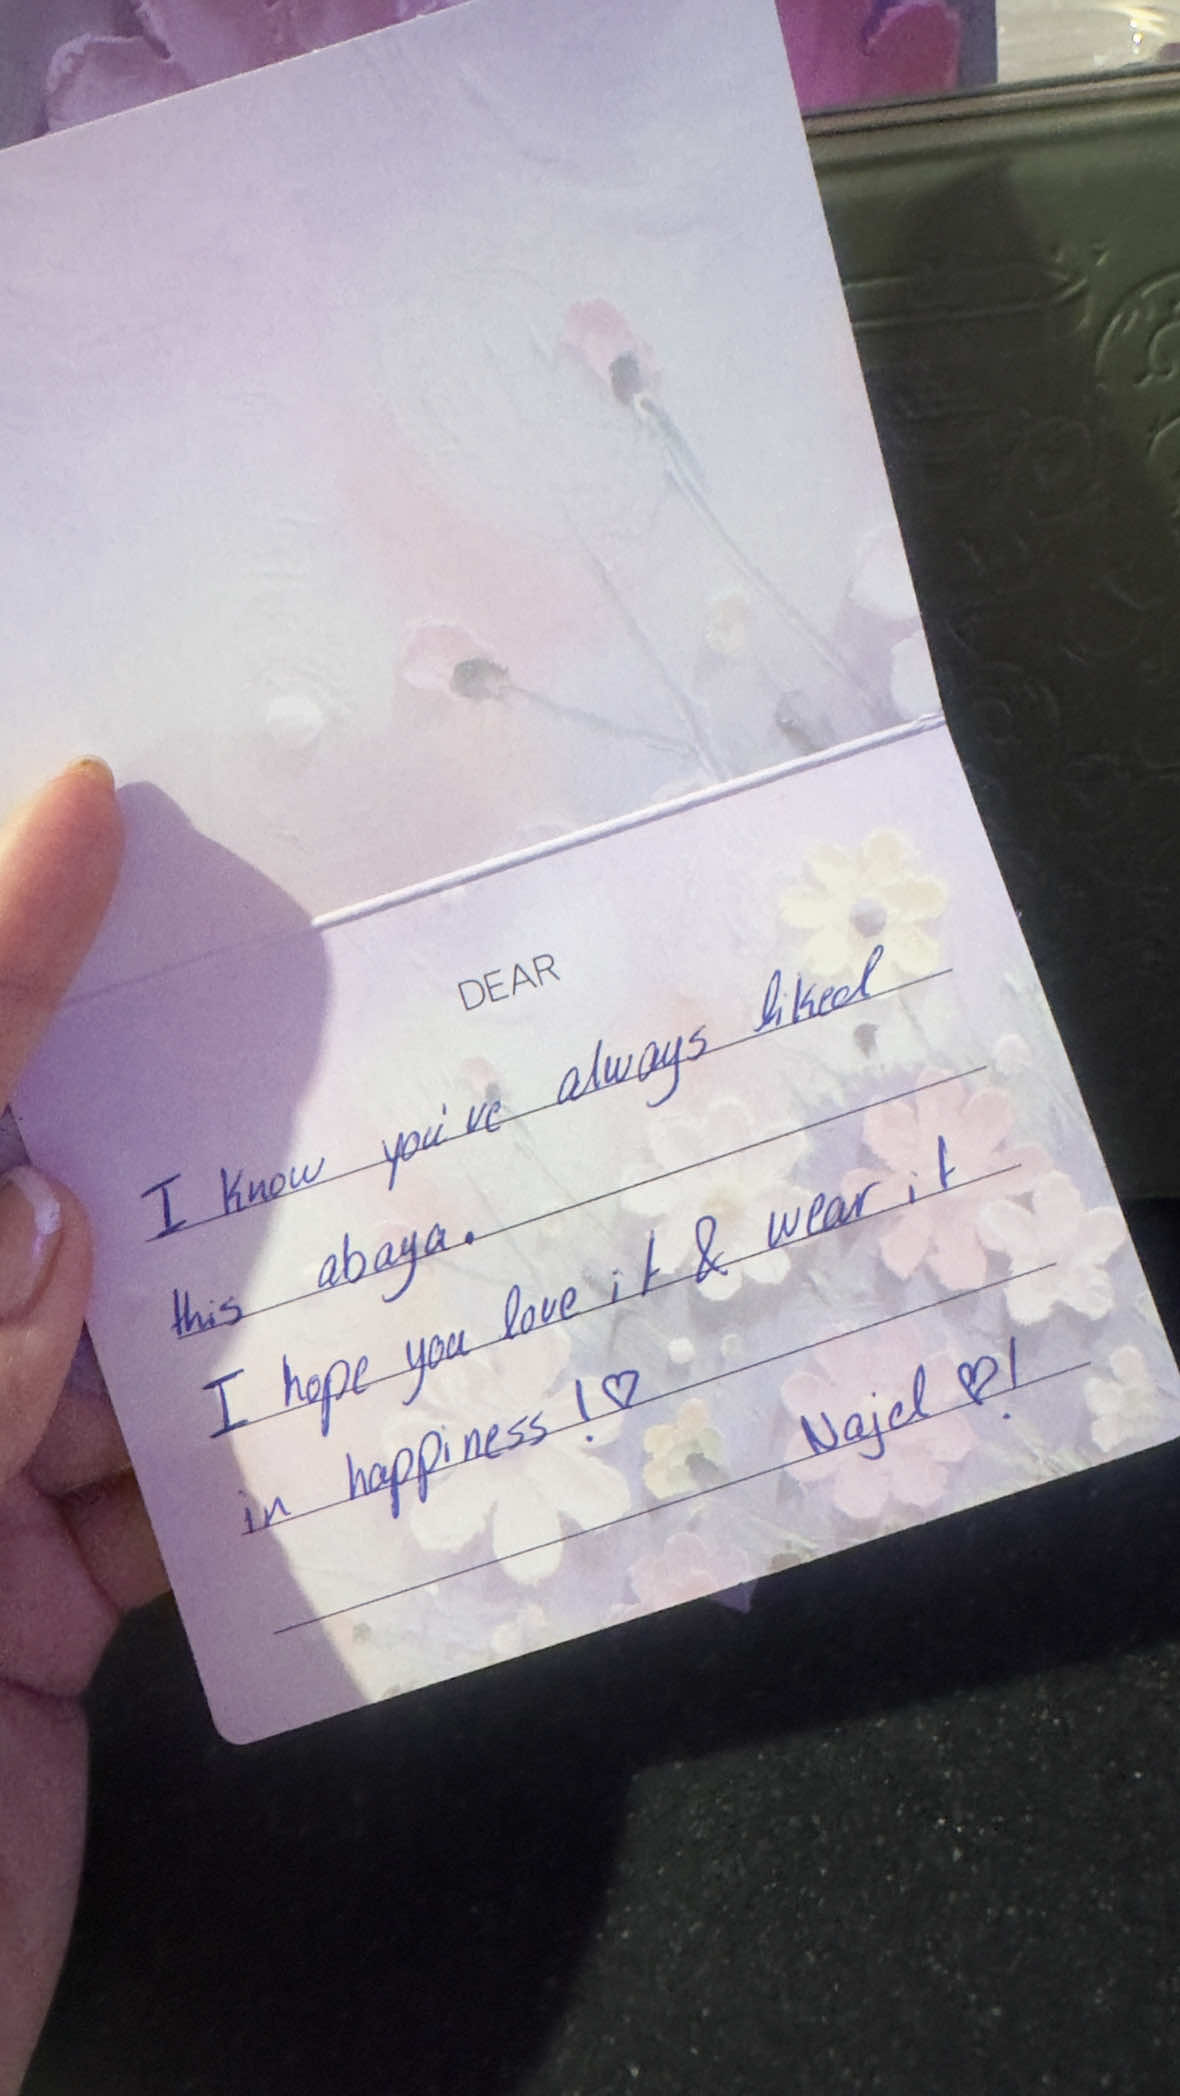 DEAR
I know you've always liked
this abaya.
I hope you love it & wear it
in happiness!♡
Najd ♡!